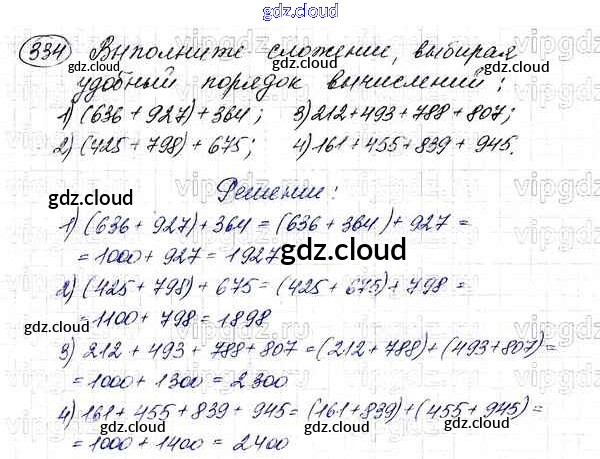 gdz.cloud
334 Выполните сложение, выбирая
удобный порядок вычислений:
1) (636 + 927) + 364; 3) 212 + 493 + 788 + 807;
2) (425 + 798) + 675; 4) 161 + 455 + 839 + 945.
Решение:
1) (636 + 927) + 364 = (636 + 364) + 927 =
= 1000 + 927 = 1927
2) (425 + 798) + 675 = (425 + 675) + 798 =
= 1100 + 798 = 1898
3) 212 + 493 + 788 + 807 = (212 + 788) + (493 + 807) =
= 1000 + 1300 = 2300
4) 161 + 455 + 839 + 945 = (161 + 839) + (455 + 945) =
= 1000 + 1400 = 2400